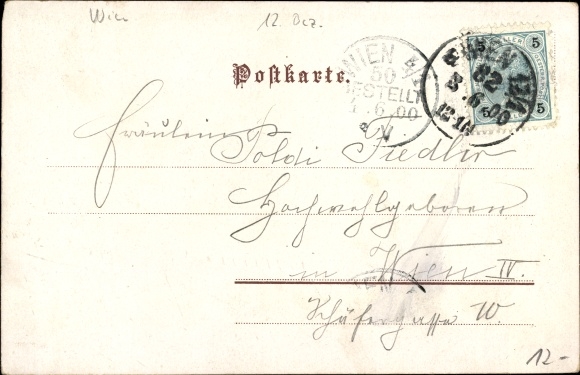 Wien
12. Dez.
Postkarte.
WIEN
50
BESTELLT
6.00
WIEN
82
6.00
HELLER
5 5
5 5
Fräulein
Poldi Fiedler
Hochwohlgeboren
in Wien IV.
Schäfergasse
12-